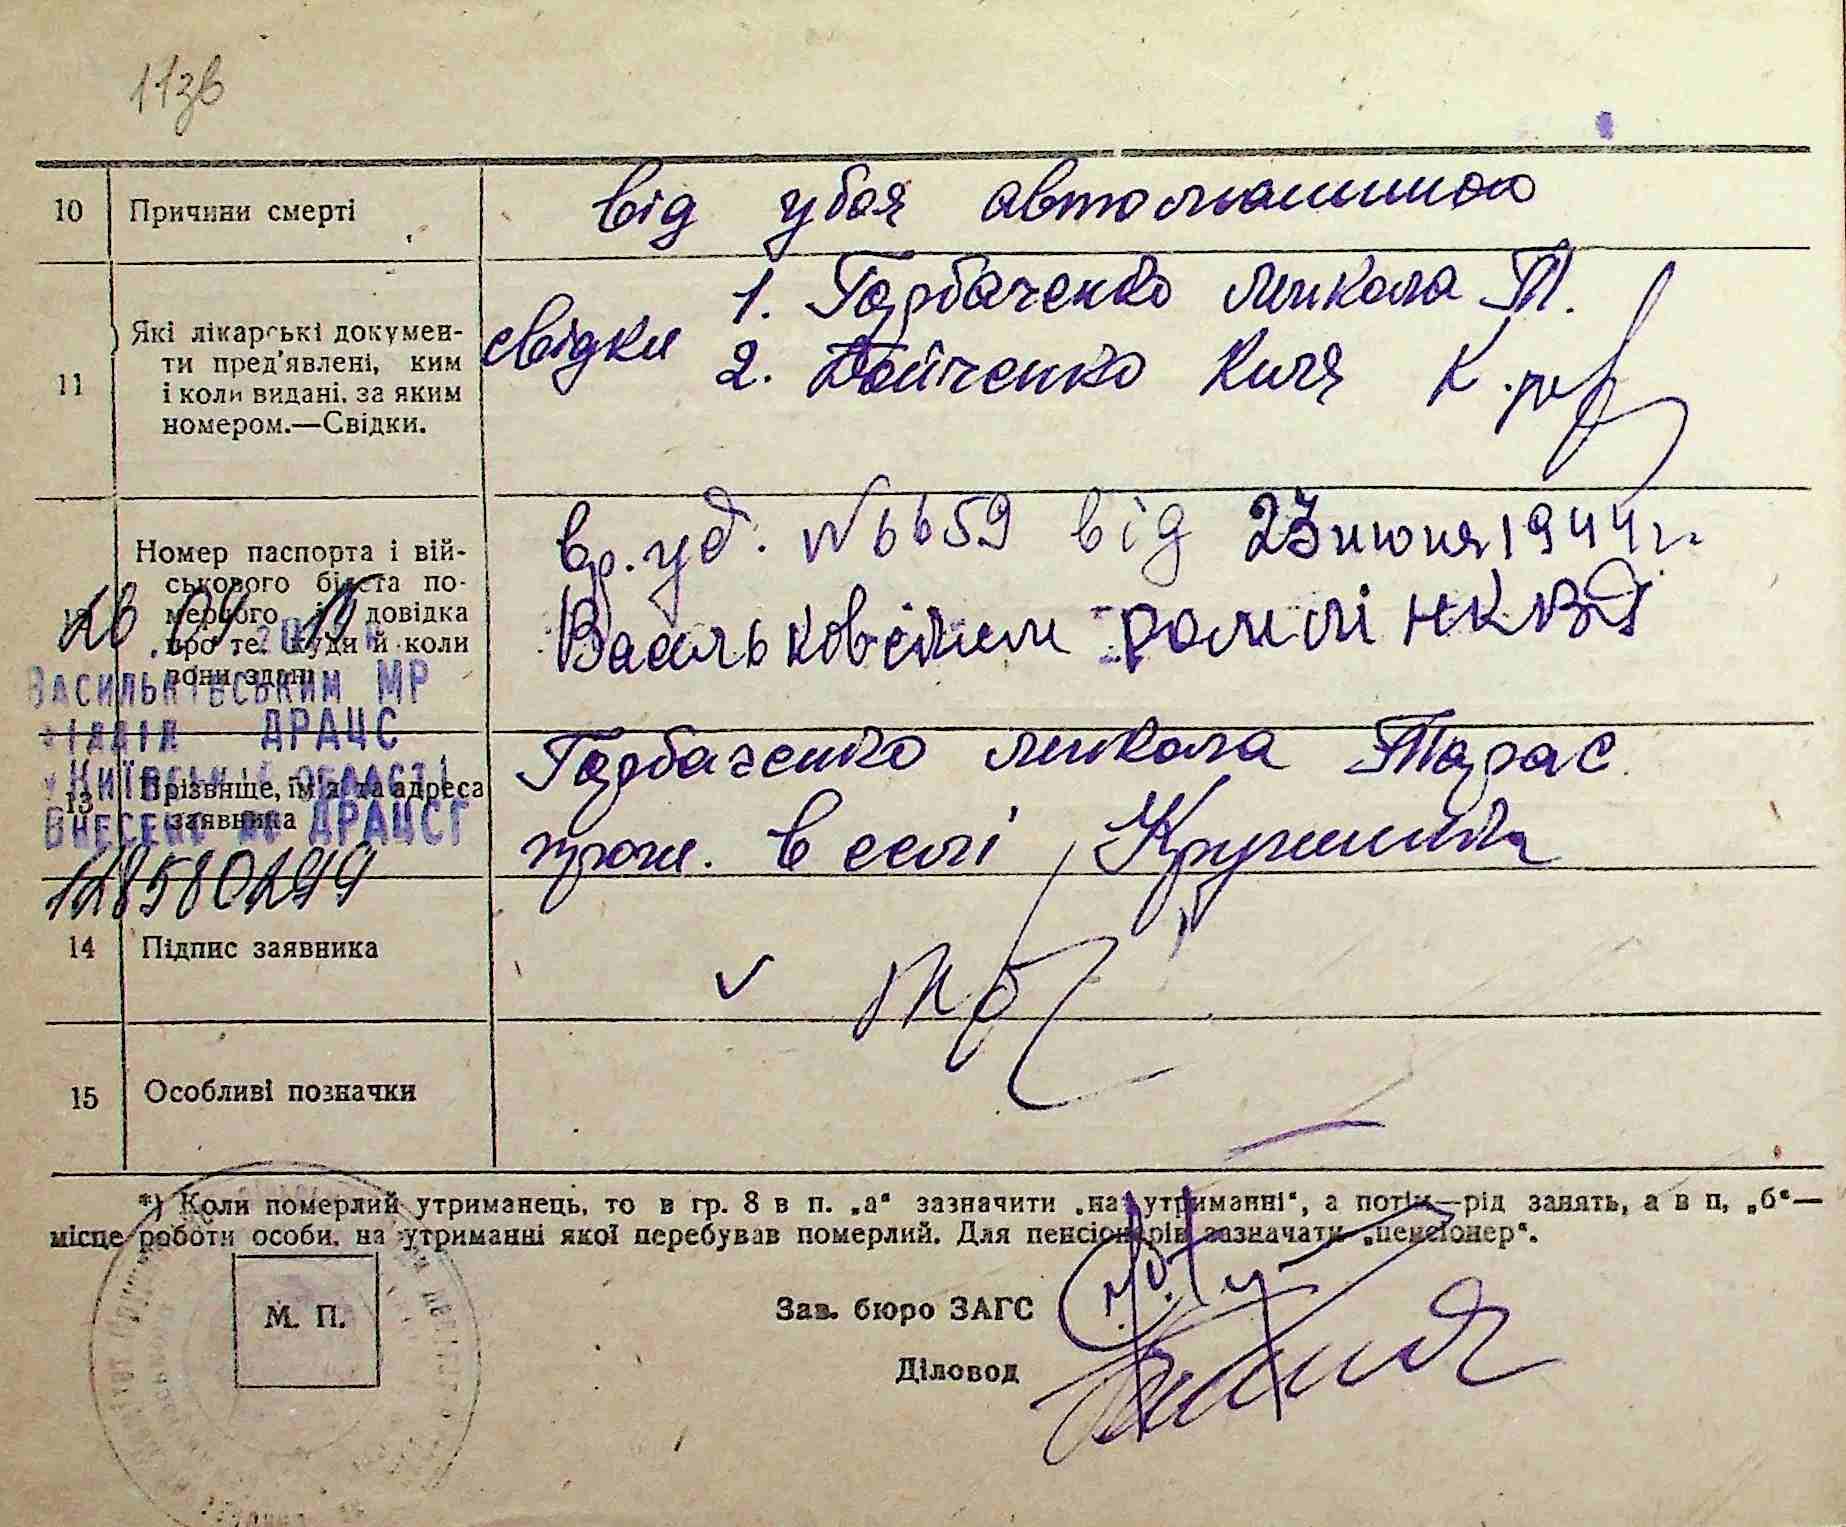 11зв
10 Причини смерті
від убоя автомашиною
11 Які лікарські докумен-
ти пред'явлені, ким
і коли видані, за яким
номером.—Свідки.
свідки
1. Горбаченко Микола Т.
2. Бойченко Киля К.
Номер паспорта і вій-
ськового білета по-
мерлого і довідка
про те, куди й коли
вони здані
вр. уд. №6659 від 23 июня 1944 г.
Васильковским РОМ МІ НКВД
ВАСИЛЬКІВСЬКИМ МР
ВІДДІЛ ДРАЦС
КИЇВСЬКІЙ ОБЛАСТІ
ВНЕСЕНО ДО ДРАЦСГ
128580299
13 Прізвіще, ім'я та адреса
заявника
Горбаченко Микола Тарас
прож. в селі
14 Підпис заявника
15 Особливі позначки
*) Коли померлий утриманець, то в гр. 8 в п. „а“ зазначити „на утриманні“, а потім—рід занять, а в п, „б“—
місце роботи особи, на утриманні якої перебував померлий. Для пенсіонерів зазначати „пенсіонер“.
М. П.
Зав. бюро ЗАГС
Діловод